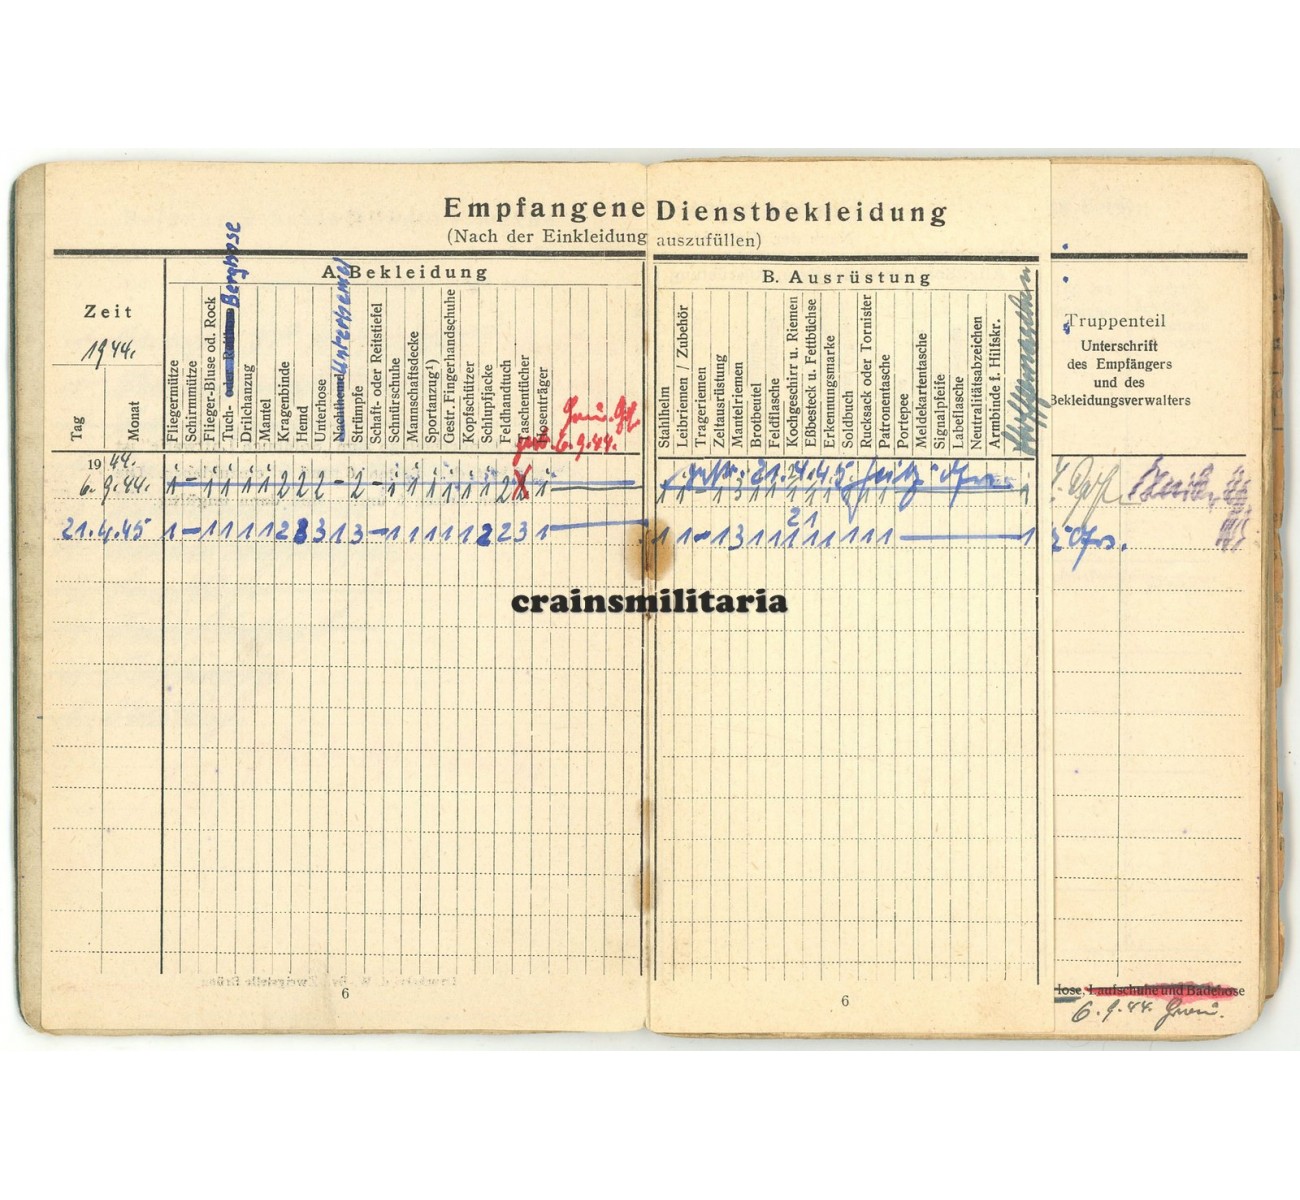 Empfangene Dienstbekleidung
(Nach der Einkleidung auszufüllen)
Zeit
1944.
Tag
Monat
A. Bekleidung
Fliegermütze
Schirmmütze
Flieger-Bluse od. Rock
Tuch- oder Berghose
Drillichanzug
Mantel
Kragenbinde
Hemd
Unterhose
Nachthemd Unterhemd
Strümpfe
Schaft- oder Reitstiefel
Schnürschuhe
Mannschaftsdecke
Sportanzug¹)
Gestr. Fingerhandschuhe
Kopfschützer
Schlupfjacke
Feldhandtuch
Taschentücher
Hosenträger
6.9.44.
B. Ausrüstung
Stahlhelm
Leibriemen / Zubehör
Trageriemen
Zeltausrüstung
Mantelriemen
Brotbeutel
Feldflasche
Kochgeschirr u. Riemen
Eßbesteck u. Fettbüchse
Erkennungsmarke
Soldbuch
Rucksack oder Tornister
Patronentasche
Portepee
Meldekartentasche
Signalpfeife
Labeflasche
Neutralitätsabzeichen
Armbinde f. Hilfskr.
Truppenteil
Unterschrift
des Empfängers
und des
Bekleidungsverwalters
1944.
6. 9.44. 1 – 1 1 1 1 2 2 2 – 2 – 1 1 1 1 1 1 2 1
21.4.45
21.4.45 1 – 1 1 1 1 2 3 3 1 3 – 1 1 1 1 1 2 2 3 1
1 1 – 1 3 1 1 2 1 1 1 1 1 1 1
crainsmilitaria
6
6
lose, Laufschuhe und Badehose
6.9.44.